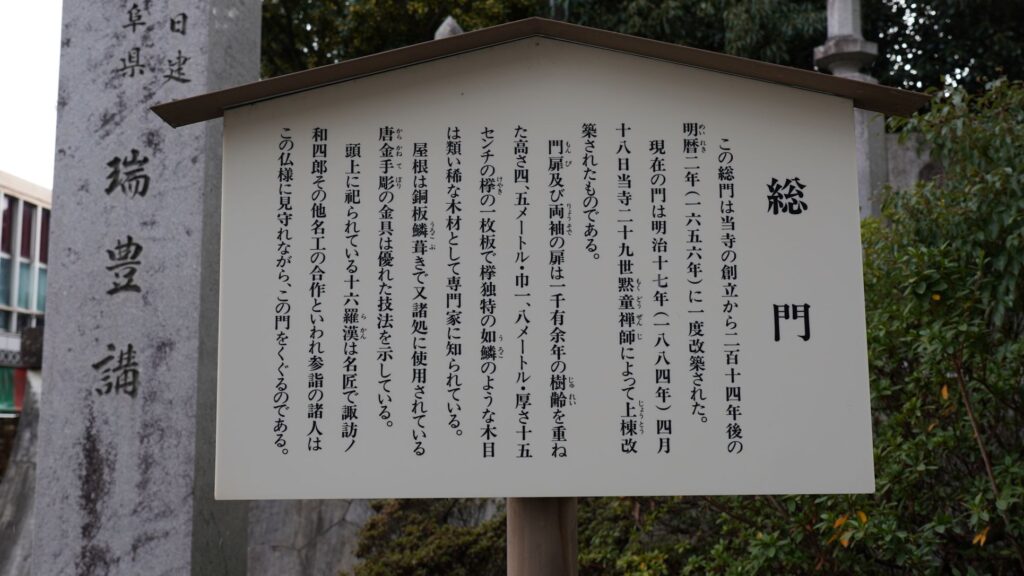 総門
この総門は当寺の創立から二百十四年後の
明暦二年（一六五六年）に一度改築された。
現在の門は明治十七年（一八八四年）四月
十八日当寺二十九世黙童禅師によつて上棟改
築されたものである。
門扉及び両袖の扉は一千有余年の樹齢を重ね
た高さ四、五メートル・巾一、八メートル・厚さ十五
センチの欅の一枚板で欅独特の如鱗のような木目
は類い稀な木材として専門家に知られている。
屋根は銅板鱗葺きで又諸処に使用されている
唐金手彫の金具は優れた技法を示している。
頭上に祀られている十六羅漢は名匠で諏訪ノ
和四郎その他名工の合作といわれ参詣の諸人は
この仏様に見守れながら、この門をくぐるのである。
日建
阜県
瑞豊講